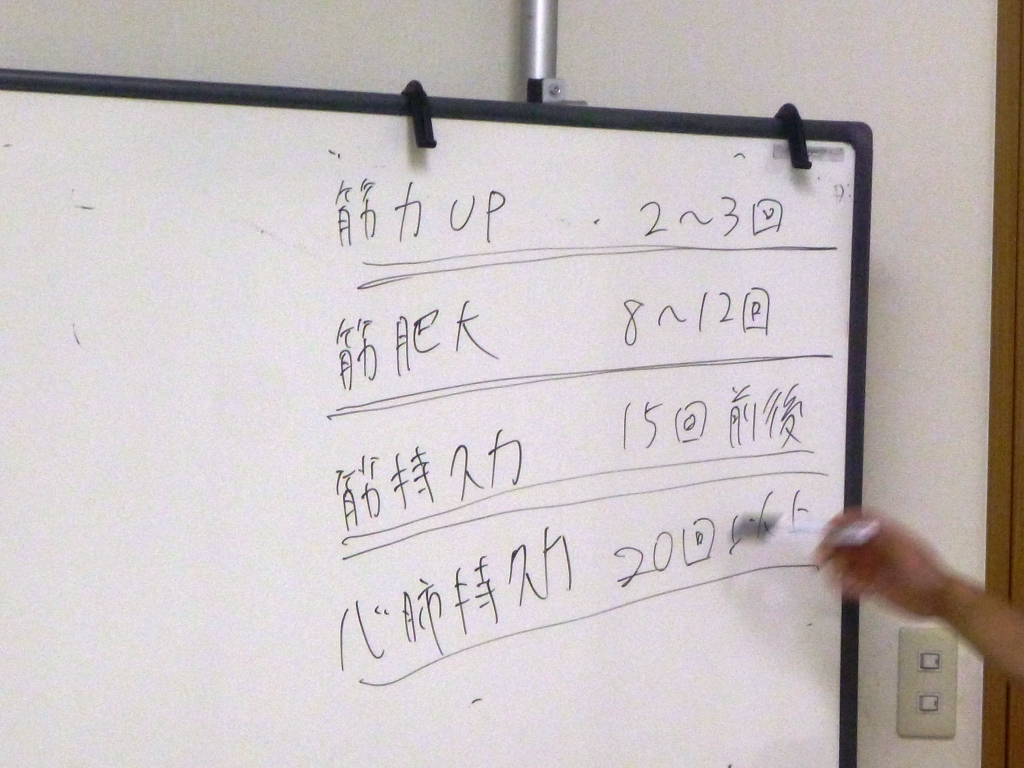 筋力UP 2～3回
筋肥大 8～12回
筋持久力 15回前後
心肺持久力 20回以上